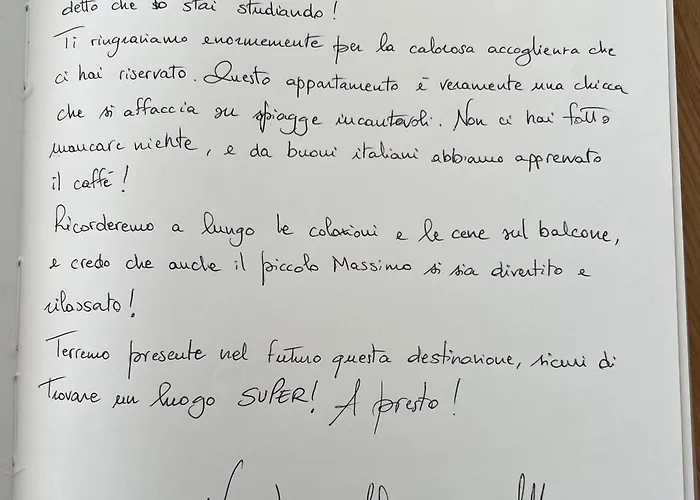 detto che so stai studiando!
Ti ringraziamo enormemente per la calorosa accoglienza che
ci hai riservato. Questo appartamento è veramente una chicca
che si affaccia su spiagge incantevoli. Non ci hai fatto
mancare niente, e da buoni italiani abbiamo apprezzato
il caffè!
Ricorderemo a lungo le colazioni e le cene sul balcone,
e credo che anche il piccolo Massimo si sia divertito e
rilassato!
Terremo presente nel futuro questa destinazione, sicuri di
trovare un luogo SUPER! A presto!